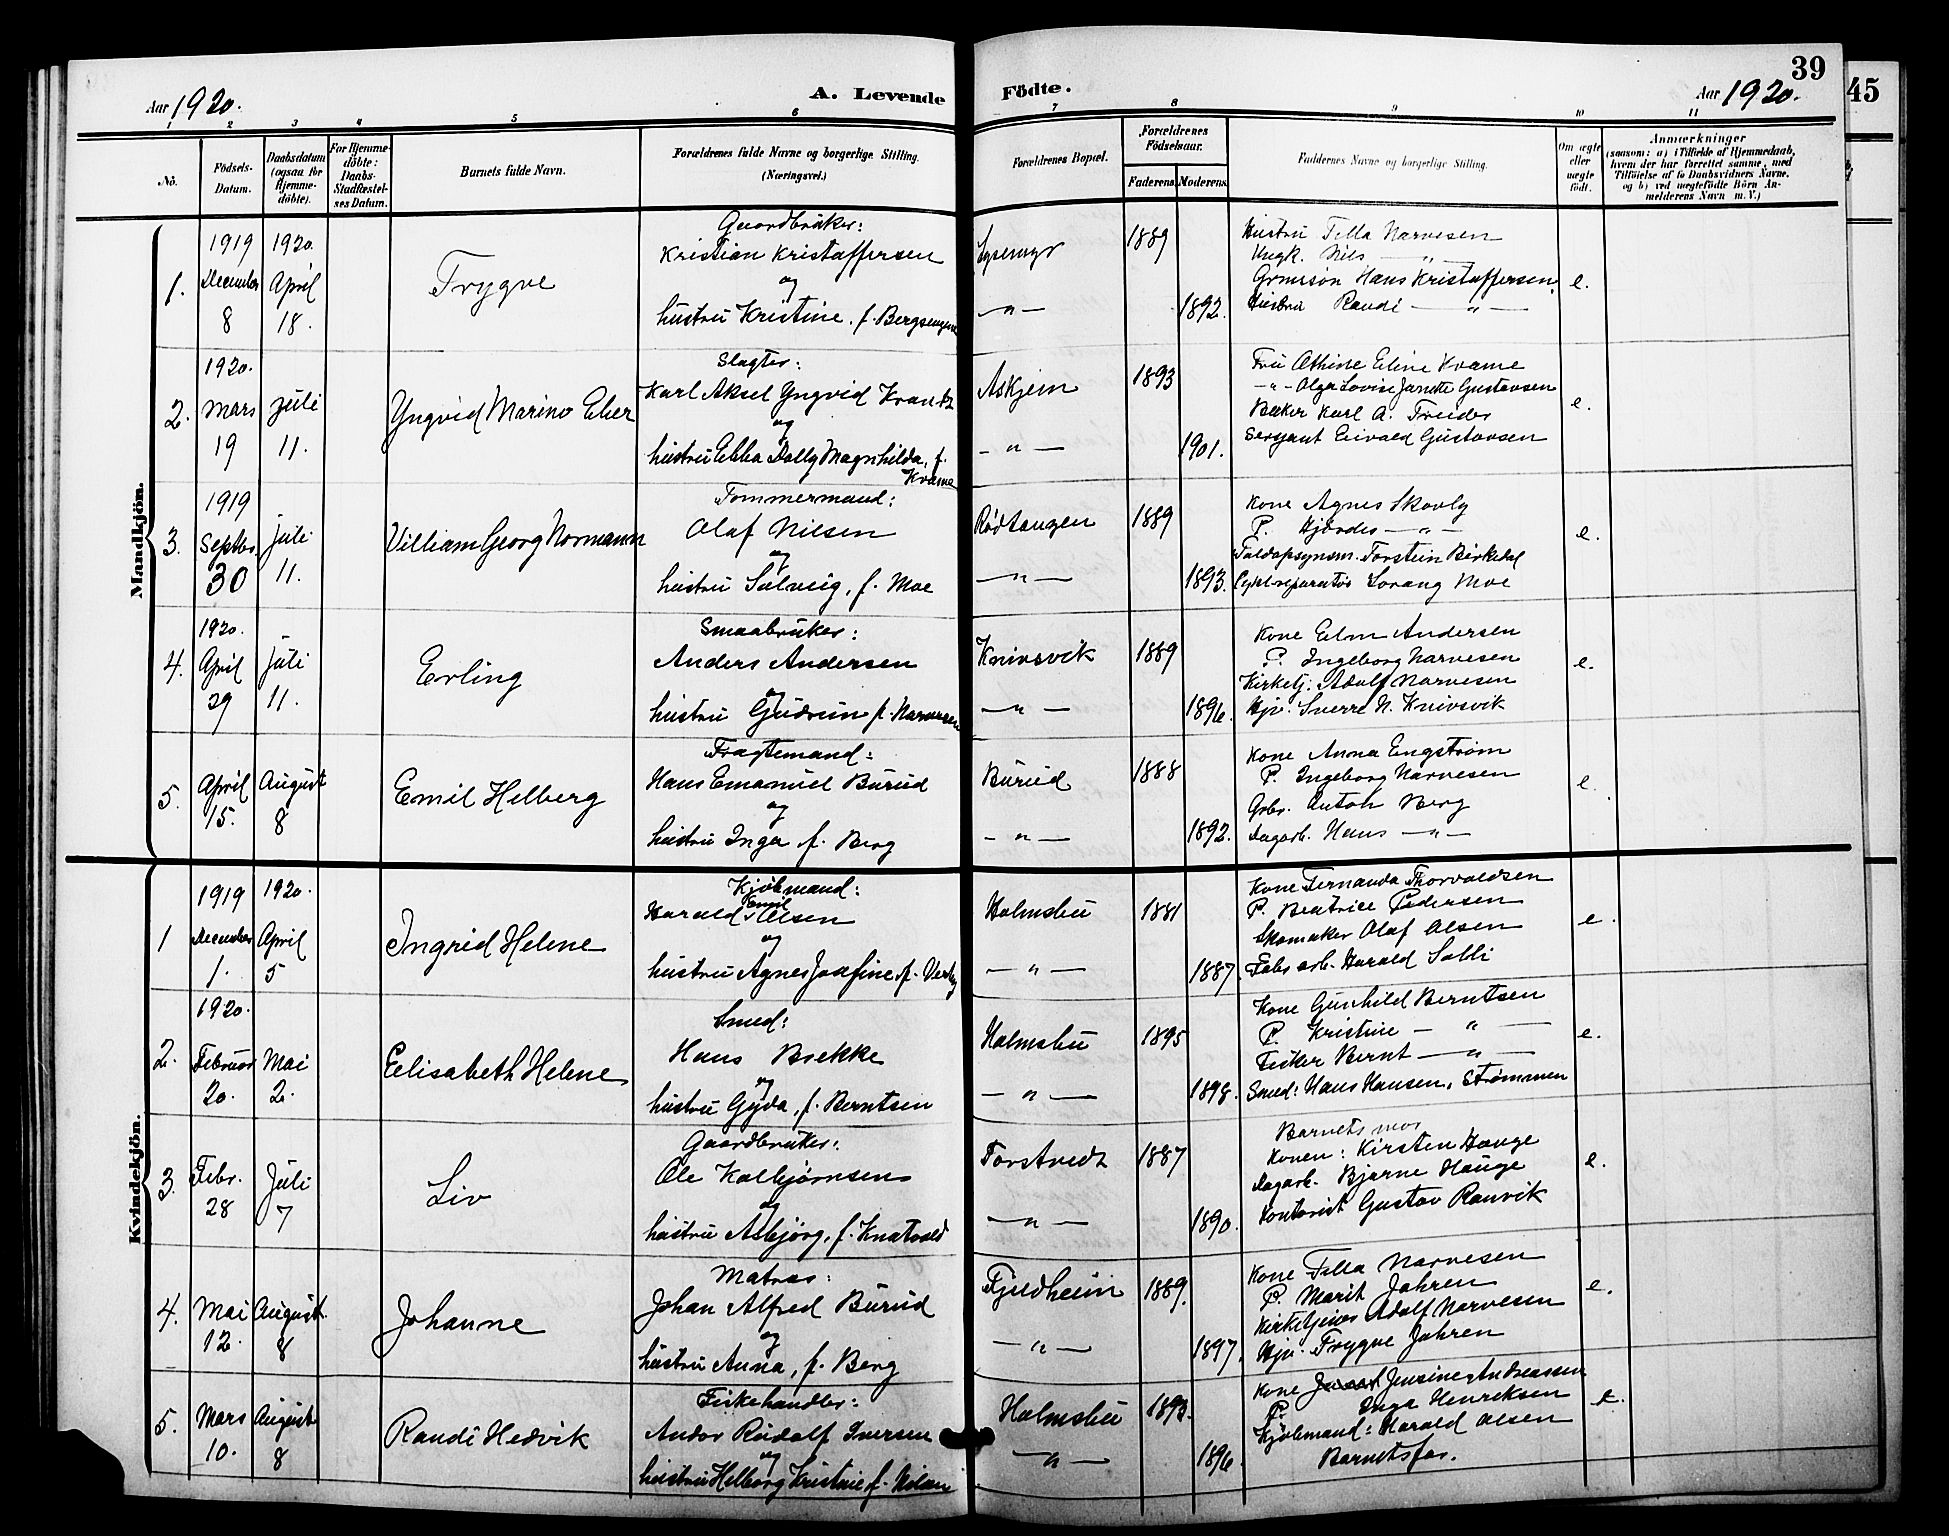 39
45
Aar 1920.
A. Levende Födte.
Aar 1920.
1 2 3 4 5 6 7 8 9 10 11
No.
Födsels-Datum.
Daabsdatum (ogsaa for Hjemme-döbte).
For Hjemme-döbte: Daabs-Stadfæstel-ses Datum.
Barnets fulde Navn.
Forældrenes fulde Navne og borgerlige Stilling. (Næringsvei.)
Forældrenes Bopæl.
Forældrenes Födselsaar.
Faderens. Moderens.
Faddernes Navne og borgerlige Stilling.
Om ægte eller uægte födt.
Anmærkninger
(saasom: a) i Tilfælde af Hjemmedaab,
hvem der har forrettet samme, med
Tilföielse af to Daabsvidners Navne,
og b) ved uægtefödte Börn An-
melderens Navn m. V.)
Mandkjön.
1. 1919 December 8 1920. April 18. Trygve
Gaardbruker:
Kristian Kristoffersen
og
hustru Kristine, f. Bergsengene
1889
— " — 1892.
Hustru Tilla Narvesen
Ungk. Nils — " —
Hans Kristoffersen
Hustru Randi — " —
e.
2. 1920. Mars 19 Juli 11. Yngvid Marino Eber
Slagter:
Karl Aksel Yngvid Krantz
og
hustru Ebba Dolly Magnhilda, f.
Kvame
Askjem 1893
— " — 1901.
Fru Athine Eline Kvame
— " — Olga Lovise Janette Gustavsen
Baker Karl A. Treider
Sersjant Eivald Gustavsen
e.
3. 1919 Septbr. 30 Juli 11. Villiam Georg Normann
Tømmermand:
Olaf Nilsen
og
hustru Solveig, f. Moe
Rødtangen 1889
— " — 1893.
Kone Agnes Skovly
P. Hjørdis — " —
Toldopsynsm. Torstein Birkedal
Cykelreparatør Lorang Moe
e.
4. 1920. April 29 Juli 11. Erling
Smaabruker:
Anders Andersen
og
hustru Gudrun f. Narvesen
Knivsvik 1889
— " — 1896.
Kone Elm Andersen
P. Ingeborg Narvesen
Kirketj. Adolf Narvesen
Hjv. Sverre N. Knivsvik
e.
5. April 15. August 8 Emil Helberg
Fragtemand:
Hans Emanuel Burud
og
hustru Inga f. Berg
Burud 1888
— " — 1892.
Kone Anna Engstrøm
P. Ingeborg Narvesen
Grbr. Anton Berg
Dagarb. Hans — " —
e.
Kvindekjön.
1 1919 December 1. 1920. April 5 Ingrid Helene
Kjøbmand:
Harald Emil Olsen
og
hustru Agnes Josefine f. Verby
Holmsbu 1881
— " — 1887.
Kone Fernanda Thorvaldsen
P. Beatrice Pedersen
Skomaker Olaf Olsen
Fabr. arb. Harald Solli
e.
2. 1920. Februar 20. Mai 2. Eelisabeth Helene
Smed:
Hans Brekke
og
hustru Gyda, f. Berntsen
Holmsbu 1895
— " — 1898.
Kone Gunhild Berntsen
P. Kristine — " —
Fisker Bernt — " —
Smed: Hans Hansen, Strømmen
e.
3. Febr. 28 Juli 7 Liv
Gaardbruker:
Ole Kolbjørnsen
og
hustru Asbjørg, f. Knatvold
Torstvedt 1887
— " — 1890.
Barnets mor
Konen: Kirsten Hauge
Dagarb. Bjarne Hauge
Kontorist Gustav Ranvik
e.
4. Mai 12. August 8 Johanne
Matros:
Johan Alfred Burud
og
hustru Anna, f. Berg
Fjeldheim 1889.
— " — 1897.
Kone Tilla Narvesen
P. Marit Jahren
Kirketjener Adolf Narvesen
Hjv. Trygve Jahren
e.
5. Mars 10. August 8 Randi Hedvik
Fiskehandler:
Andor Rudolf Iversen
og
hustru Helborg Kristine f. Nilsen
Holmsbu 1893.
— " — 1896.
Kone Jensine Andreassen
P. Inga Henriksen
Kjøbmand: Harald Olsen
Barnets far.
e.